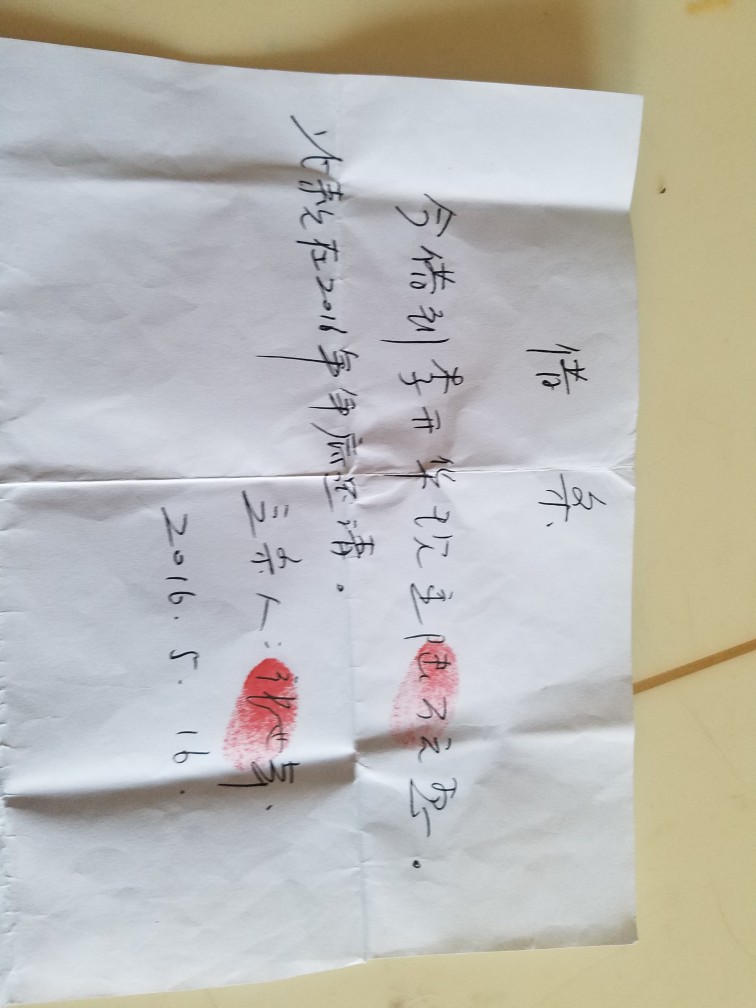 借条
今借到李开华现金陆万元整。
此款在2016年年底还清。
立条人:张世
2016.5.16.